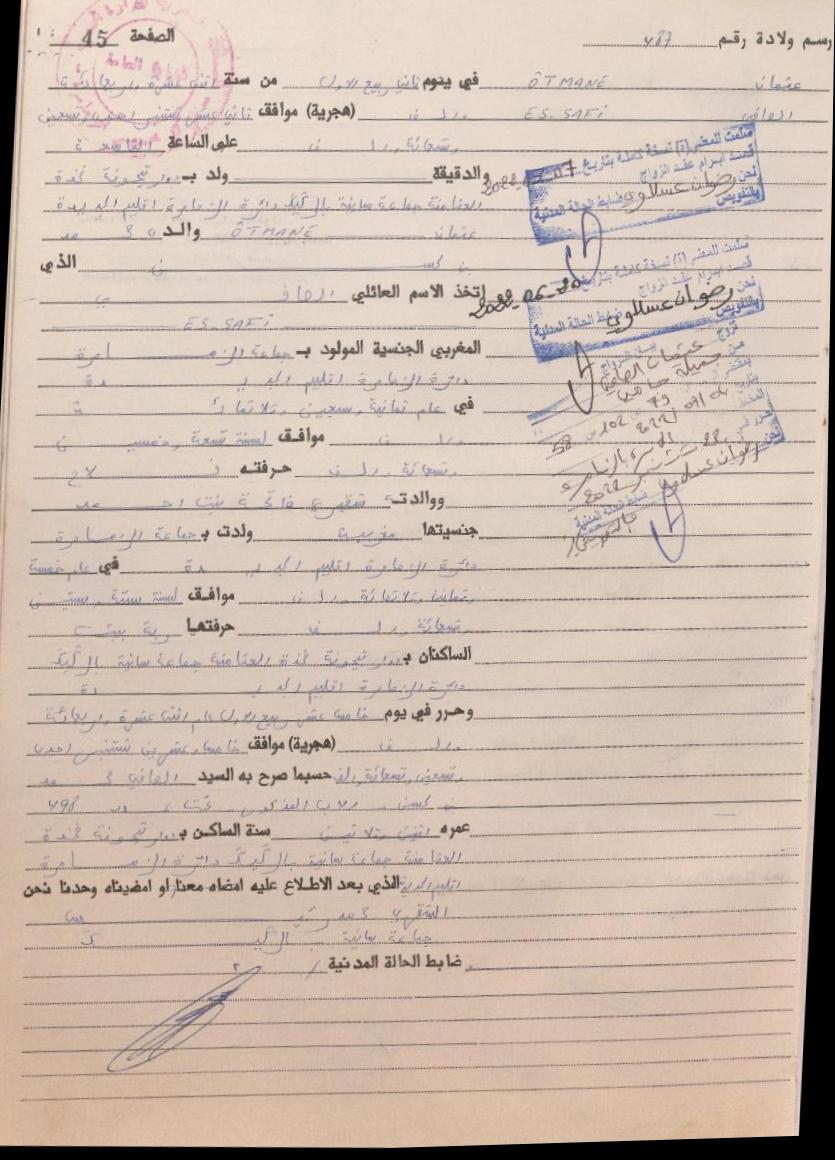 رسم ولادة رقم 487
الصفحة 45
عثمان ÔTMANE في يوم ثاني ربيع الاول من سنة اثنى عشرة واربعمائة
الصافي ES.SAFI والف (هجرية) موافق ثاني عشر شتنبر احدى وتسعين
وتسعمائة والف على الساعة
والدقيقة ولد ب دوار تيجونة فخدة
العثامنة جماعة سانية بالرگيگ دائرة الزمامرة اقليم الجديدة
عثمان ÔTMANE والد محمد
بن كسن الذي
إتخذ الاسم العائلي الصافي
ES.SAFI
المغربي الجنسية المولود ب جماعة الزمامرة
دائرة الزمامرة اقليم الجديدة
في عام ثمانية وسبعين وثلاثمائة
والف موافق لسنة تسعة وخمسين
وتسعمائة والف حرفته فلاح
ووالدته بنت احمد
جنسيتها مغربية ولدت ب جماعة الزمامرة
دائرة الزمامرة اقليم الجديدة في عام خمسة
وثمانين وثلاثمائة والف موافق لسنة ستة وستين
وتسعمائة والف حرفتها ربة بيت
الساكنان ب دوار تيجونة فخدة العثامنة جماعة سانية بالرگيگ
دائرة الزمامرة اقليم الجديدة
وحرر في يوم خامس عشر ربيع الاول عام اثنى عشرة واربعمائة
والف (هجرية) موافق خامس وعشرين شتنبر احدى
وتسعين وتسعمائة والف حسبما صرح به السيد الصافي محمد
بن كسن والاب المذكور تحت عدد 498
عمره اثنين وثلاثين سنة الساكن ب دوار تيجونة فخدة
العثامنة جماعة سانية بالرگيگ دائرة الزمامرة
اقليم الجديدة الذي بعد الاطلاع عليه امضاه معنا/او امضيناه وحدنا نحن
محمد
جماعة سانية بالرگيگ
ضابط الحالة المدنية
سلمت للمعني (ة) نسخة كاملة بتاريخ 2022
قصد ابرام عقد الزواج
نحن رضوان عسلاوي ضابط الحالة المدنية
بالتفويض
سلمت للمعني (ة) نسخة كاملة بتاريخ 2022.06.20
قصد ابرام عقد الزواج
نحن رضوان عسلاوي ضابط الحالة المدنية
بالتفويض
بيان الزواج
تزوج عثمان الصافي
من جميلة
79
102 ص 58
2022
نحن رضوان عسلاوي
ضابط الحالة المدنية
بالتفويض